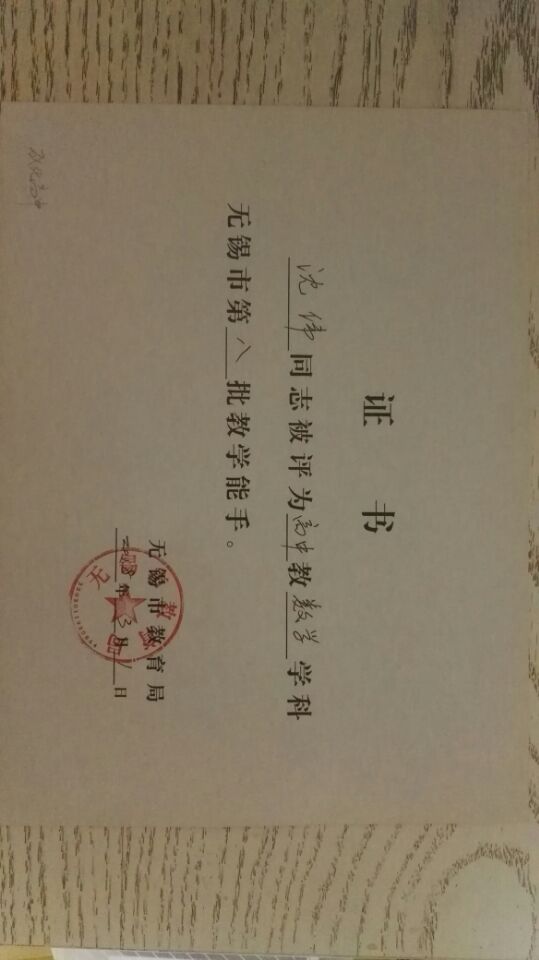 证 书
沈伟同志被评为高中教数学学科
无锡市第八批教学能手。
无锡市教育局
年3月1日